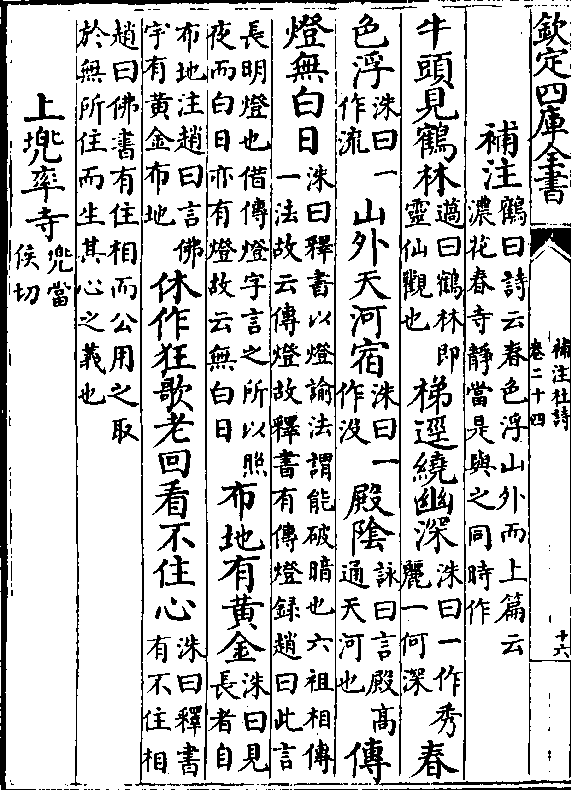 欽定四庫全書
補注杜詩
卷二十四
十六
補注
鶴曰詩云春色浮山外而上篇云
濃花春寺靜當是與之同時作
牛頭見鶴林
薖曰鶴林即
靈仙觀也
梯逕繞幽深
洙曰一作秀
麗一何深
春
色浮
洙曰一
作流
山外天河宿
洙曰一
作没
殿陰
詠曰言殿髙
通天河也
傳
燈無白日
洙曰釋書以燈諭法謂能破暗也六祖相傳
一法故云傳燈故釋書有傳燈録趙曰此言
長明燈也借傳燈字言之所以照
夜而白日亦有燈故云無白日
布地有黄金
洙曰見
長者自
布地注趙曰言佛
宇有黄金布地
休作狂歌老回看不住心
洙曰釋書
有不住相
趙曰佛書有住相而公用之取
於無所住而生其心之義也
上兠率寺
兠當
侯切